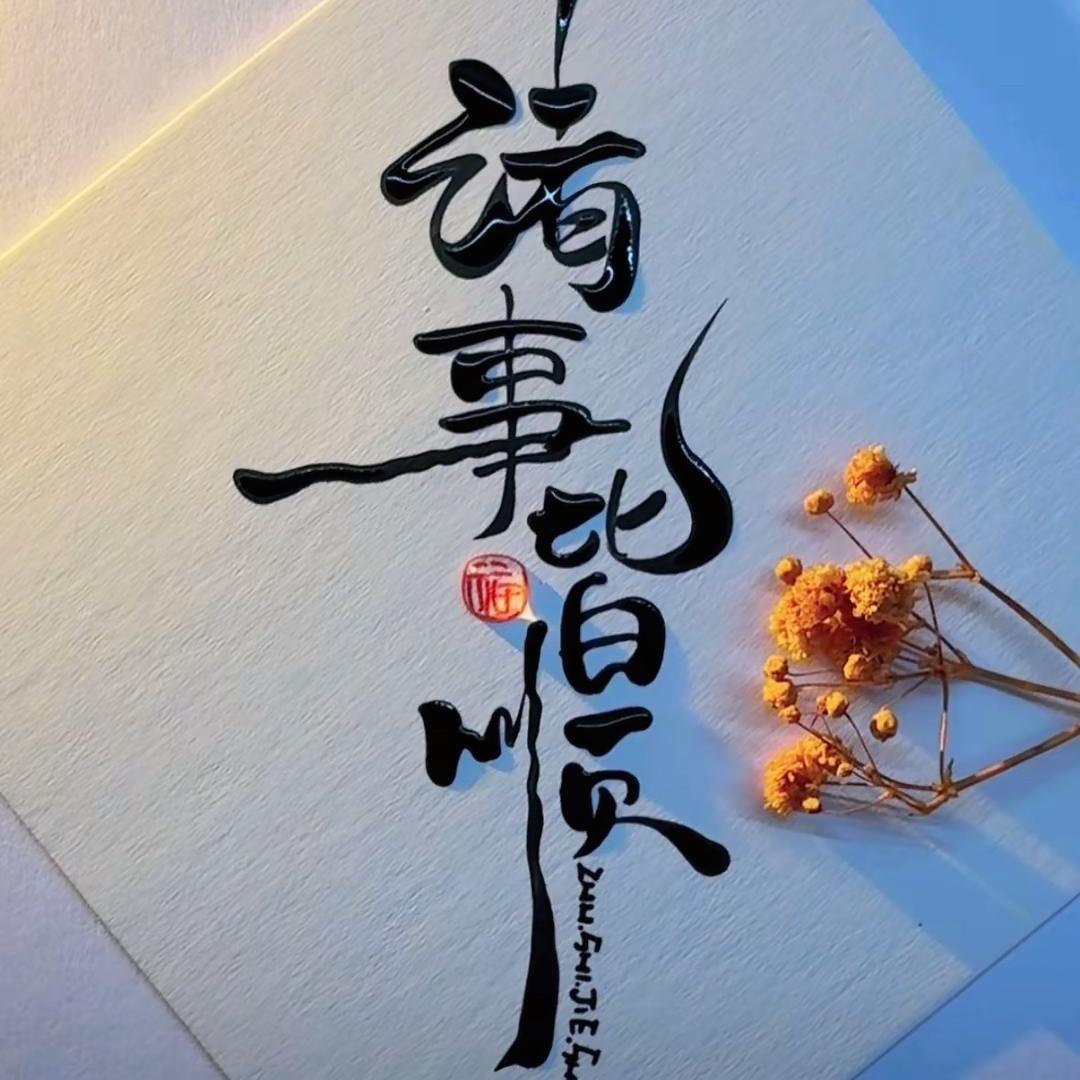 诸事皆顺
ZHU.SHI.JIE.SH